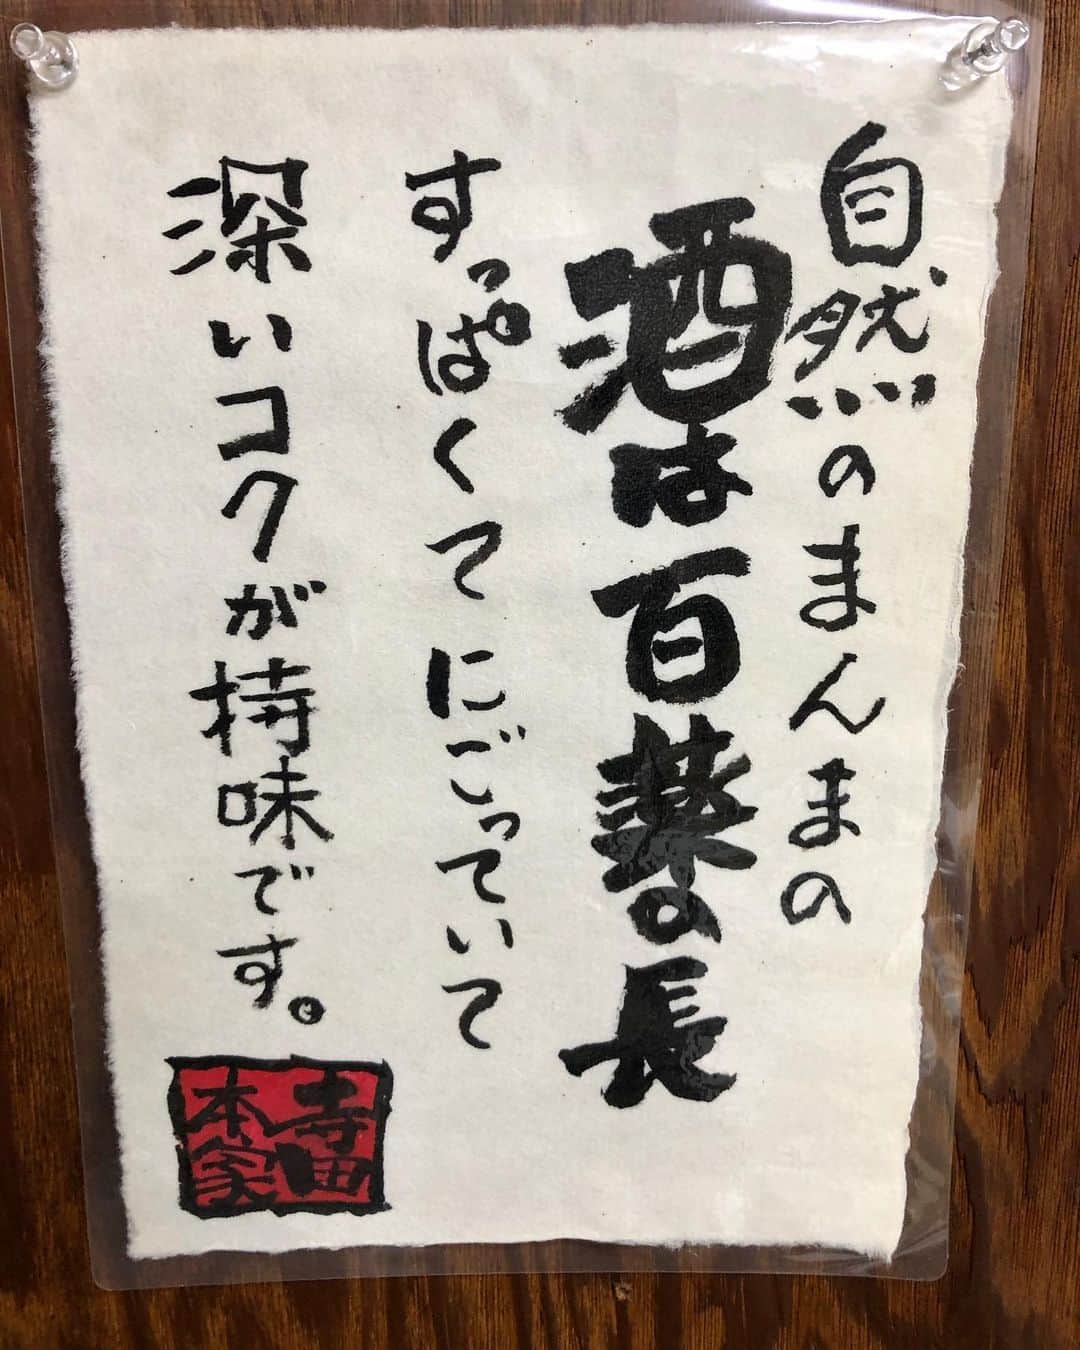 自然のまんまの
酒は百薬の長
すっぱくてにごっていて
深いコクが持味です。
寺田
本家